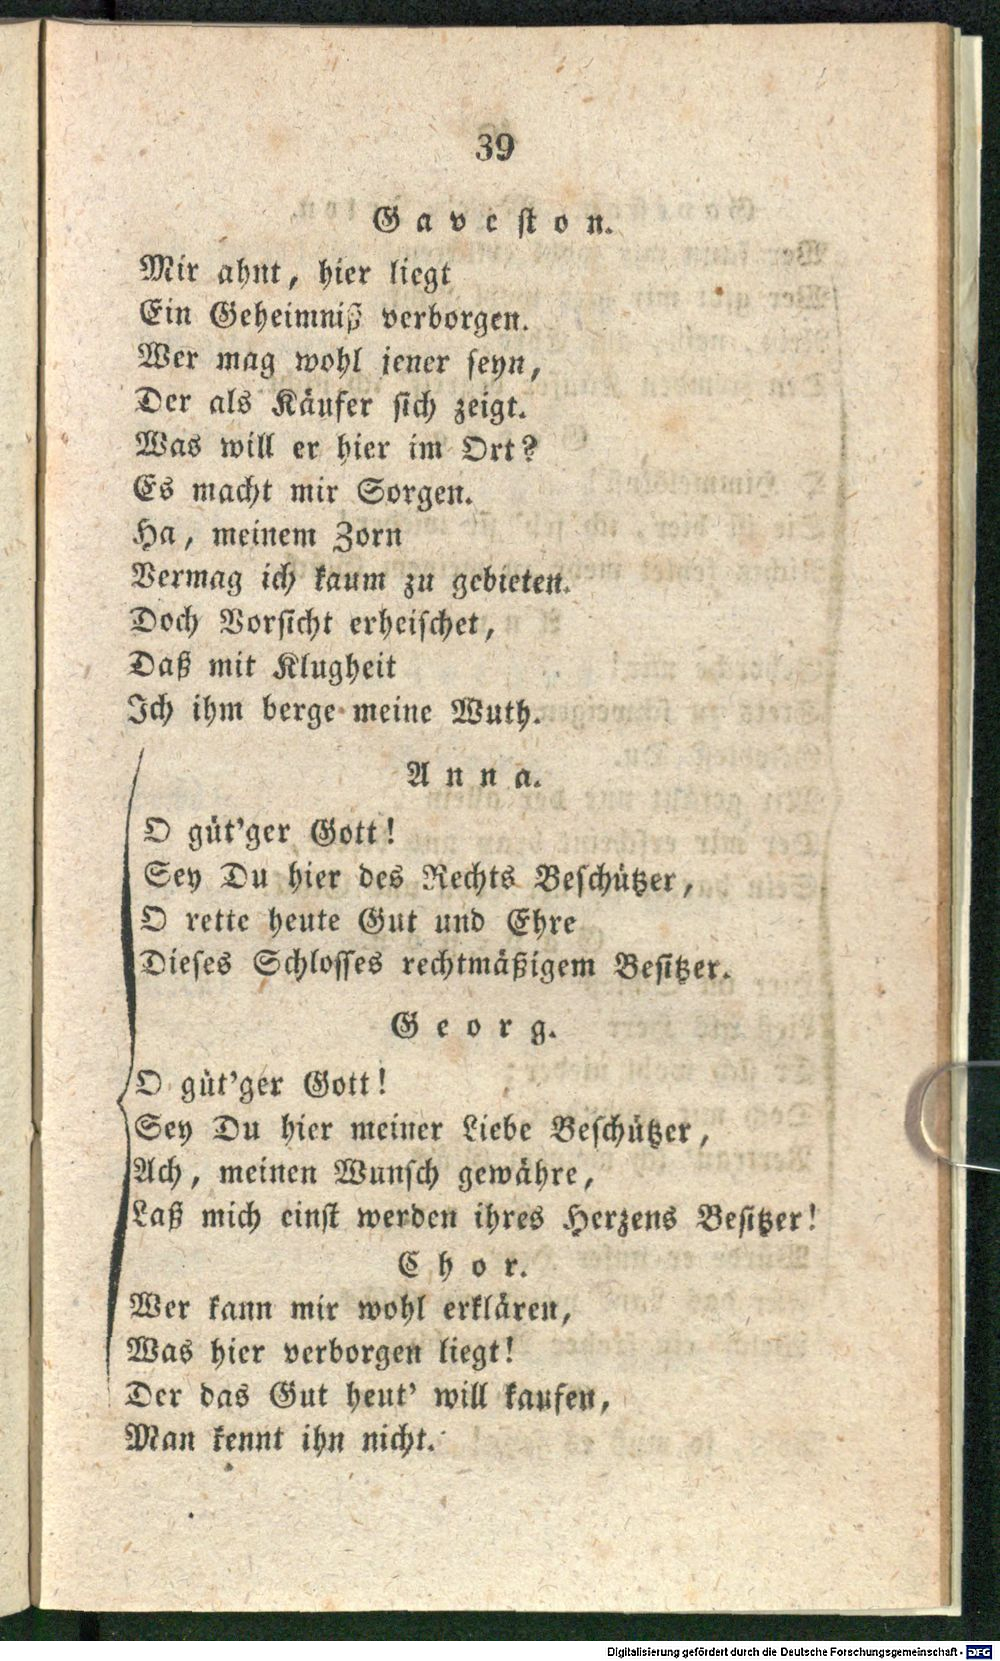 39
Gaveston.
Mir ahnt, hier liegt
Ein Geheimniß verborgen.
Wer mag wohl jener seyn,
Der als Käufer sich zeigt.
Was will er hier im Ort?
Es macht mir Sorgen.
Ha, meinem Zorn
Vermag ich kaum zu gebieten.
Doch Vorsicht erheischet,
Daß mit Klugheit
Ich ihm berge meine Wuth.
Anna.
O güt'ger Gott!
Sey Du hier des Rechts Beschützer,
O rette heute Gut und Ehre
Dieses Schlosses rechtmäßigem Besitzer.
Georg.
O güt'ger Gott!
Sey Du hier meiner Liebe Beschützer,
Ach, meinen Wunsch gewähre,
Laß mich einst werden ihres Herzens Besitzer!
Chor.
Wer kann mir wohl erklären,
Was hier verborgen liegt!
Der das Gut heut' will kaufen,
Man kennt ihn nicht.
Digitalisierung gefördert durch die Deutsche Forschungsgemeinschaft - DFG